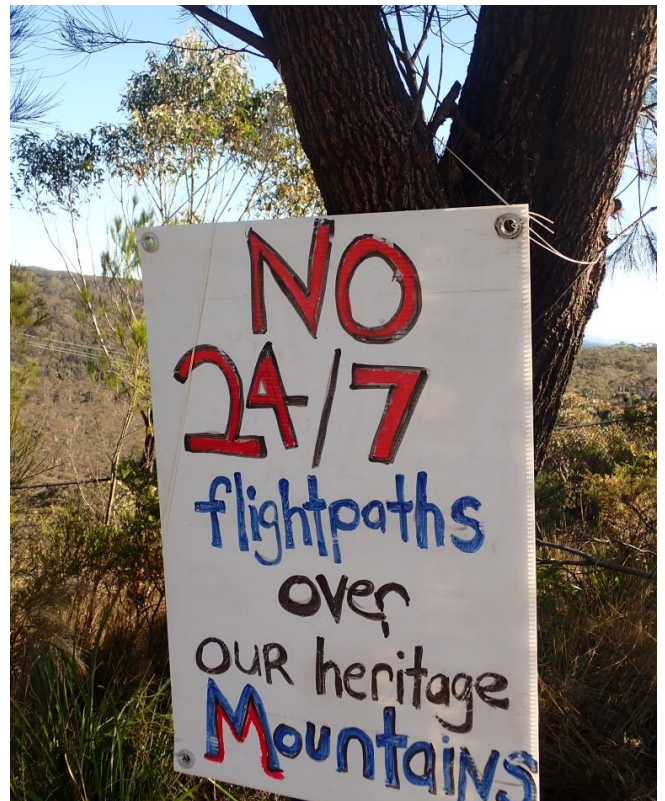 NO
24/7
flightpaths
over
OUR heritage
Mountains